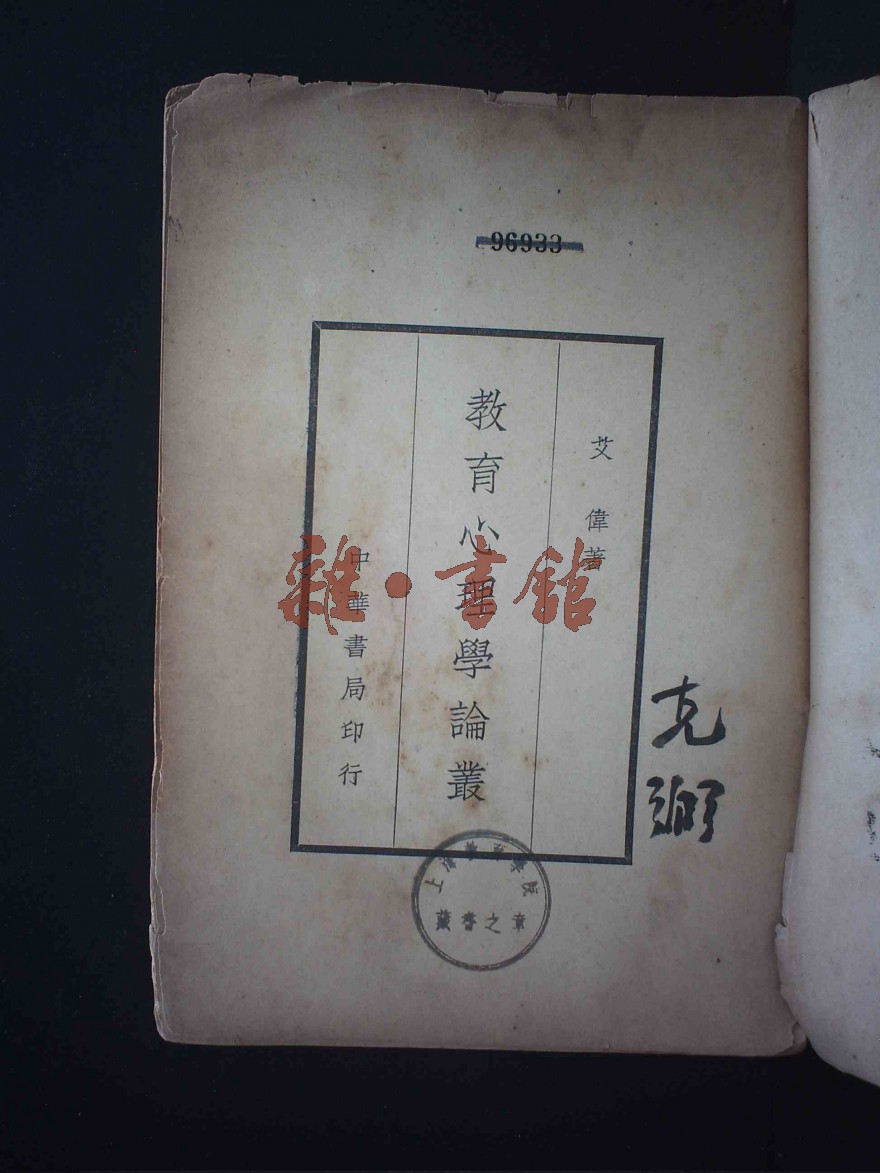 96933
艾偉著
教育心理學論叢
中華書局印行
克
雜·書館
藏書之章